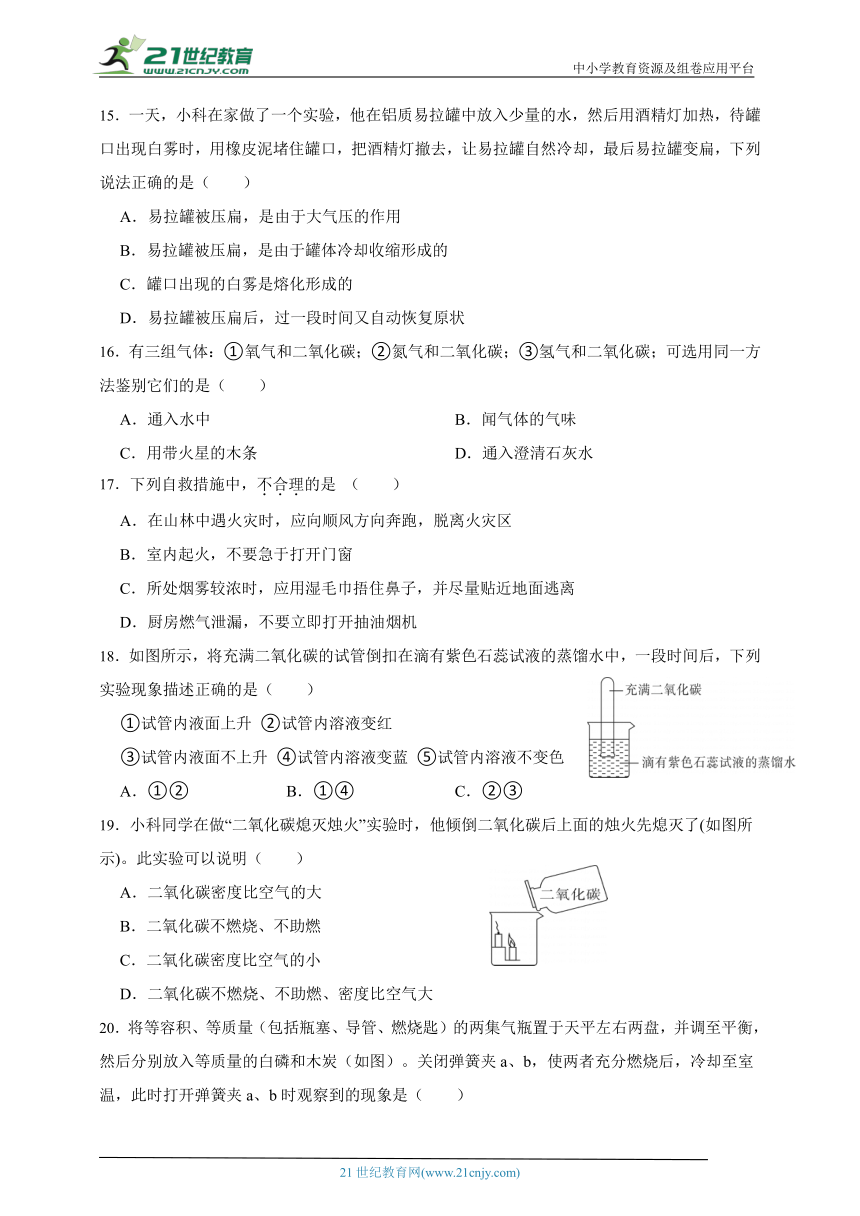 21世纪教育
WWW.21CNJY.COM
中小学教育资源及组卷应用平台
15．一天，小科在家做了一个实验，他在铝质易拉罐中放入少量的水，然后用酒精灯加热，待罐
口出现白雾时，用橡皮泥堵住罐口，把酒精灯撤去，让易拉罐自然冷却，最后易拉罐变扁，下列
说法正确的是（　　）
A．易拉罐被压扁，是由于大气压的作用
B．易拉罐被压扁，是由于罐体冷却收缩形成的
C．罐口出现的白雾是熔化形成的
D．易拉罐被压扁后，过一段时间又自动恢复原状
16．有三组气体：①氧气和二氧化碳；②氮气和二氧化碳；③氢气和二氧化碳；可选用同一方
法鉴别它们的是（　　）
A．通入水中　　B．闻气体的气味
C．用带火星的木条　　D．通入澄清石灰水
17．下列自救措施中，不合理的是 （　　）
A．在山林中遇火灾时，应向顺风方向奔跑，脱离火灾区
B．室内起火，不要急于打开门窗
C．所处烟雾较浓时，应用湿毛巾捂住鼻子，并尽量贴近地面逃离
D．厨房燃气泄漏，不要立即打开抽油烟机
18．如图所示，将充满二氧化碳的试管倒扣在滴有紫色石蕊试液的蒸馏水中，一段时间后，下列
实验现象描述正确的是（　　）
充满二氧化碳
①试管内液面上升 ②试管内溶液变红
③试管内液面不上升 ④试管内溶液变蓝 ⑤试管内溶液不变色
滴有紫色石蕊试液的蒸馏水
A．①②　　B．①④　　C．②③
19．小科同学在做“二氧化碳熄灭烛火”实验时，他倾倒二氧化碳后上面的烛火先熄灭了(如图所
示)。此实验可以说明（　　）
A．二氧化碳密度比空气的大
二氧化碳
B．二氧化碳不燃烧、不助燃
C．二氧化碳密度比空气的小
D．二氧化碳不燃烧、不助燃、密度比空气大
20．将等容积、等质量（包括瓶塞、导管、燃烧匙）的两集气瓶置于天平左右两盘，并调至平衡，
然后分别放入等质量的白磷和木炭（如图）。关闭弹簧夹 a、b，使两者充分燃烧后，冷却至室
温，此时打开弹簧夹 a、b 时观察到的现象是（　　）
21 世纪教育网(www.21cnjy.com)